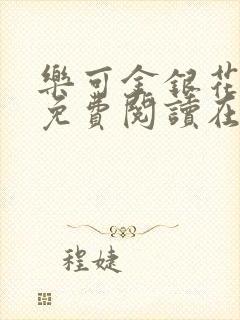 樂可金銀花
免費閱讀在
程婕